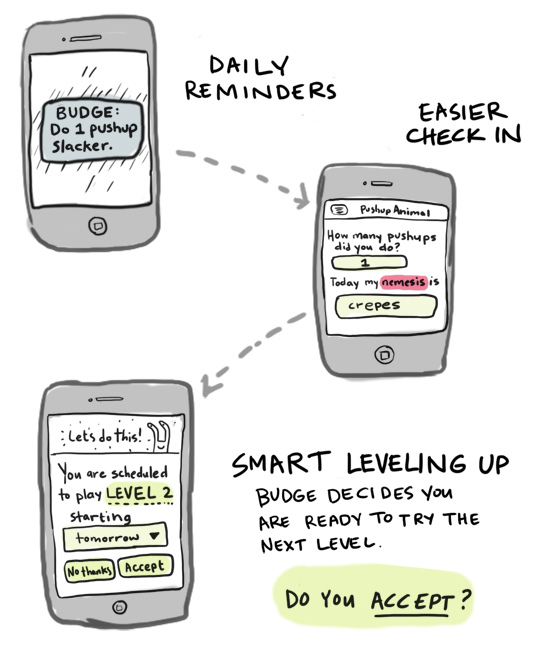 DAILY
REMINDERS
BUDGE:
Do 1 pushup
slacker.
EASIER
CHECK IN
Pushup Animal
How many pushups
did you do?
1
Today my nemesis is
crepes
Let's do this!
You are scheduled
to play LEVEL 2
starting
tomorrow
No thanks
Accept
SMART LEVELING UP
BUDGE DECIDES YOU
ARE READY TO TRY THE
NEXT LEVEL.
DO YOU ACCEPT?